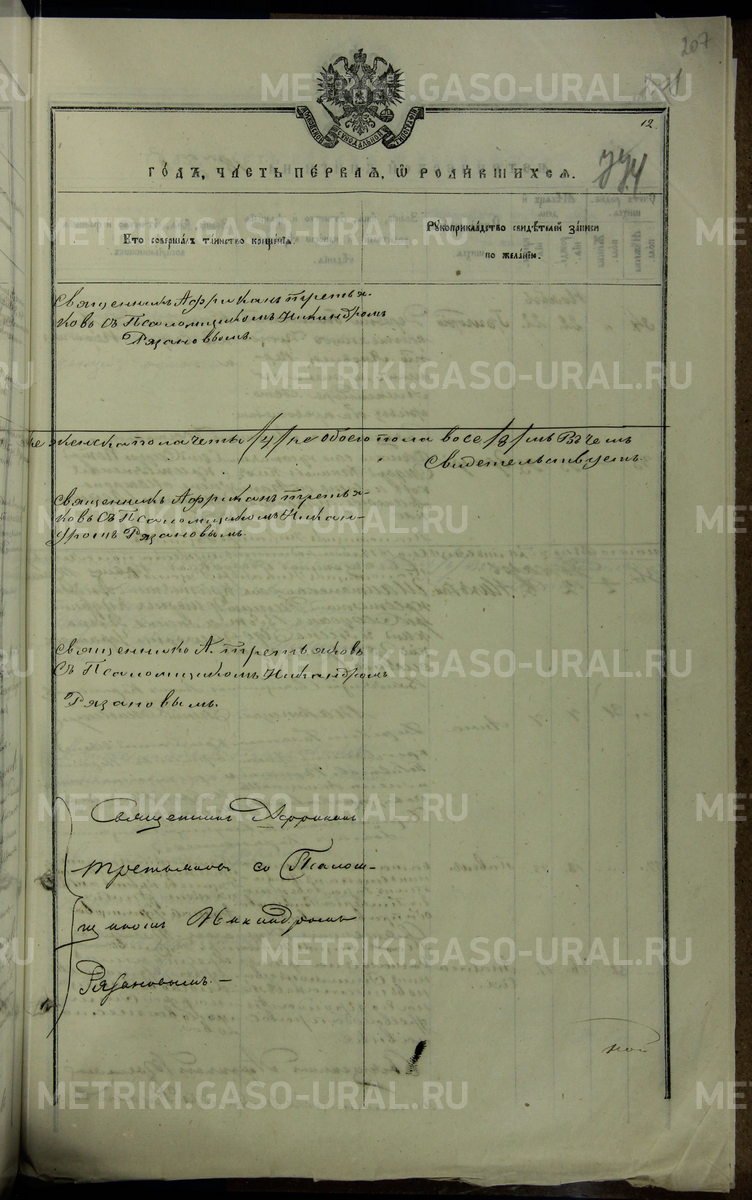 207
12
годъ, часть первая, ѡ родившихся.
Кто совершалъ таинство крещенія
Рукоприкладство свидѣтелей записи
по желанію.
Священникъ Африканъ Третья-
ковъ съ Псаломщикомъ Никандромъ
Рязановымъ.
женска пола четы /4/ ре обоего пола восе /8/ мь Въ чемъ
Свидетельствуетъ
Священникъ Африканъ Третья-
ковъ съ Псаломщикомъ Никан-
дромъ Рязановымъ.
Священникъ А. Третьяковъ
съ Псаломщикомъ Никандромъ
Рязановымъ.
Священникъ Африканъ
Третьяковъ со Псалом-
щикомъ Никандромъ
Рязановымъ.—
METRIKI.GASO-URAL.RU